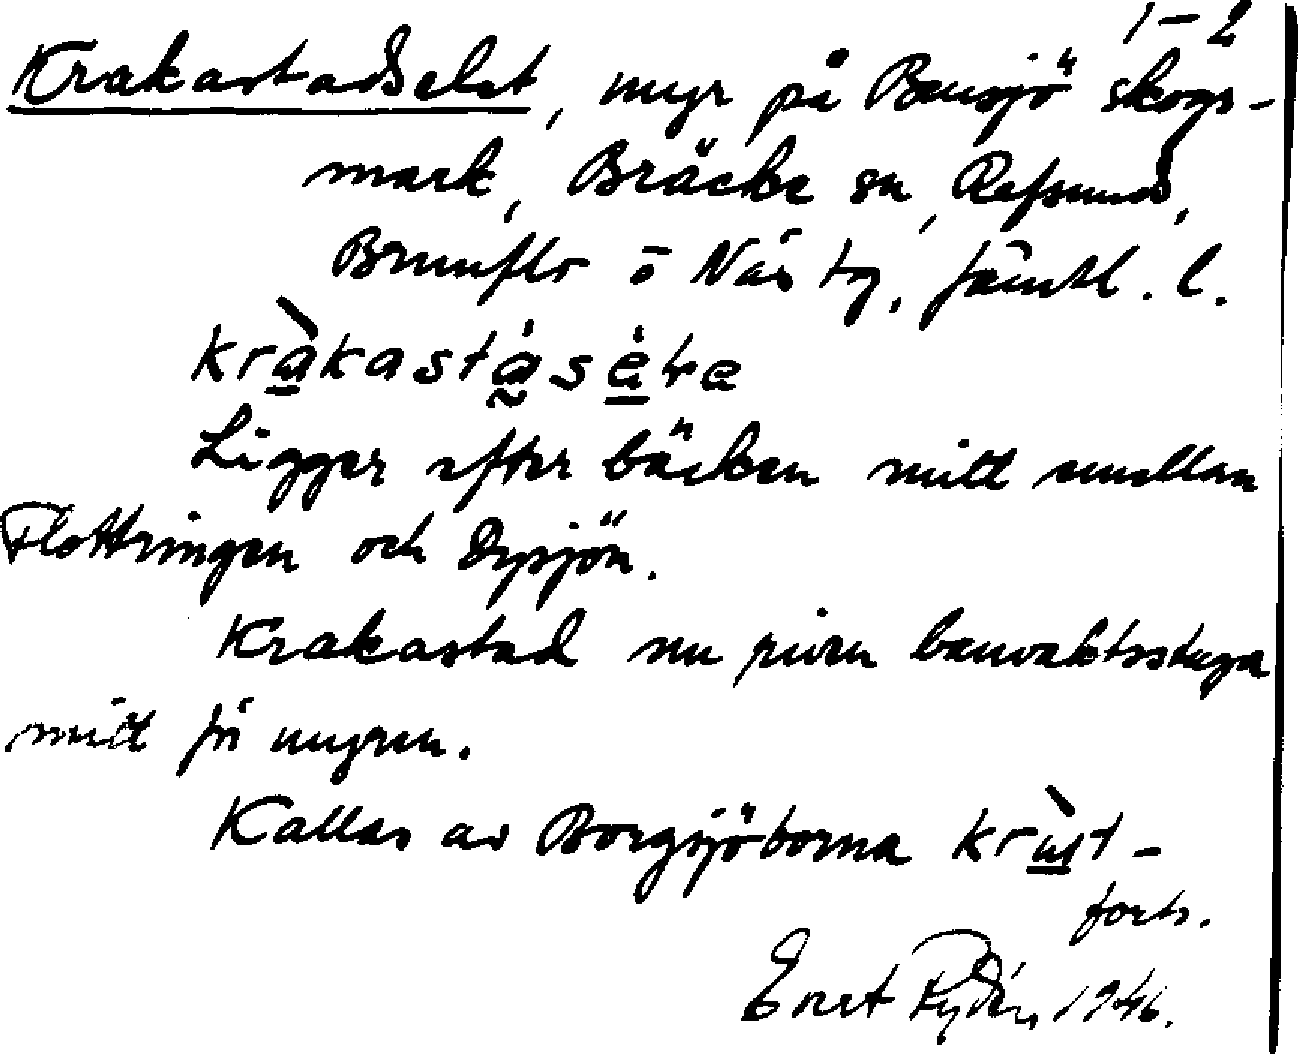 1-2
Krakastadselet, myr på Bensjö skogs-
mark, Bräcke sn, Refsund,
Brunflo o Näs tg, Jämtl. l.
kràkastásére
Ligger efter bäcken mitt emellan
Flottringen och Dysjön.
Krakastad nu finn banvaktsstuga
mitt på myren.
Kallas av Borgsjöborna kràst-
forts.
Enet Rydén, 1946.